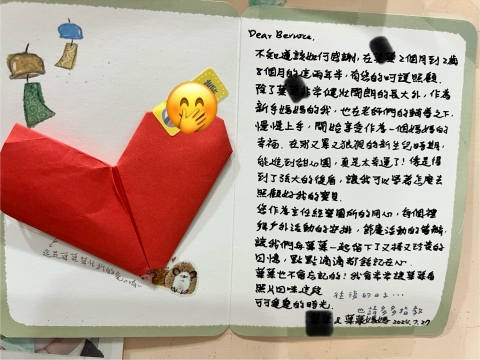 Dear Bernice,
不知道該如何感謝，在 2個月到2歲
8個月的這兩年半，有您的呵護照顧。
除了 非常健壯開朗的長大外，作為
新手媽媽的我，也在老師們的輔導之下
慢慢上手，開始享受作為一個媽媽的
幸福。在那又累又狼狽的新生兒時期，
能進到甜心園，真是太幸運了！像是得
到了強大的後盾，讓我可以學著怎麼去
照顧好我的寶貝。
您作為主任經營園所的用心，每個禮
拜戶外活動的安排，節慶活動的
讓我們與葉葉一起留下了又棒又珍貴的
回憶，點點滴滴都銘記在心。
葉葉也不會忘記的！我會常常 葉葉看
照片回味這段
可可愛愛的時光。
往後的日子…
也請多多指教
& 葉葉媽媽 2024.7.27